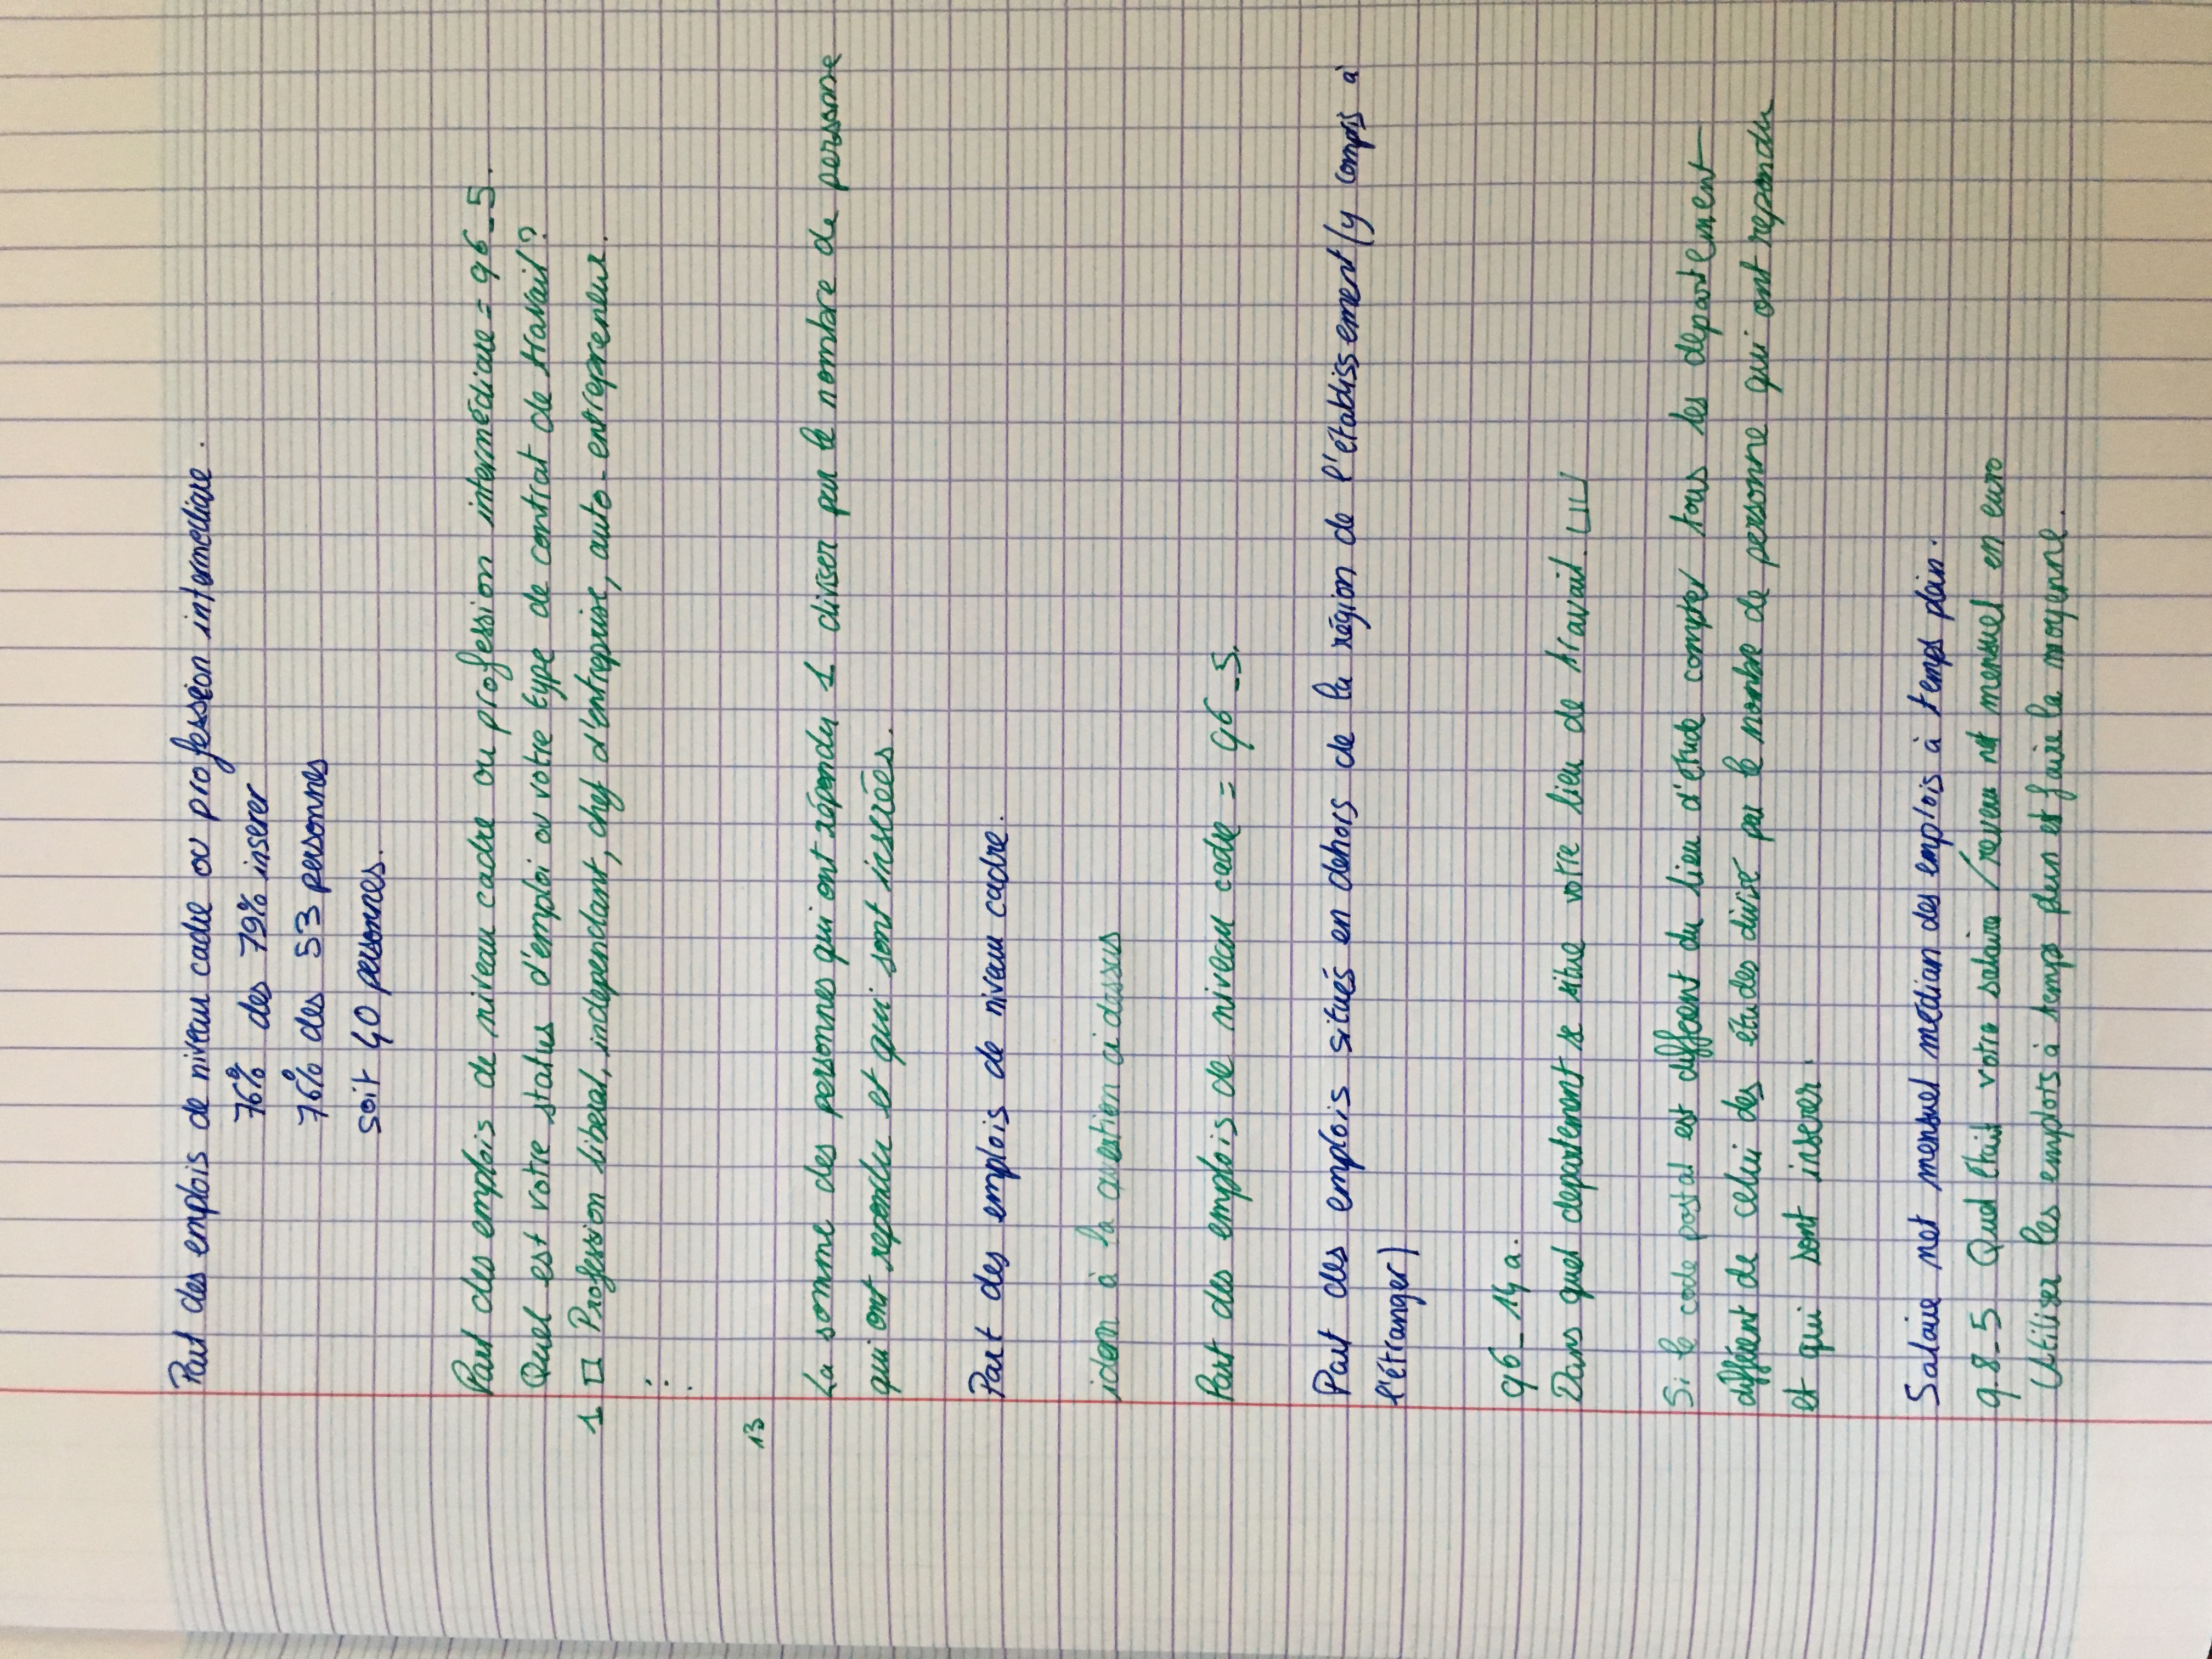 Part des emplois de niveau cadre ou profession intermediaire.
76% des 79% inserer
76% des 53 personnes
soit 40 personnes.
Part des emplois de niveau cadre ou profession intermédiaire = q6_5.
Quel est votre status d'emploi ou votre type de contrat de travail?
1 □ Profession liberal, independant, chef d'entreprise, auto-entrepreneur.
⋮
13
La somme des personnes qui ont répondu 1 diviser par le nombre de personne
qui ont repondu et qui sont insérées.
Part des emplois de niveau cadre.
idem à la question ci dessus
Part des emplois de niveau cadre = q6_5.
Part des emplois situés en dehors de la région de l'établissement (y compris à
l'étranger)
q6_14a.
Dans quel departement se situe votre lieu de travail. |_|_|
Si le code postal est different du lieu d'étude compter tous les departement
différent de celui des études divisé par le nombre de personne qui ont repondu
et qui sont inserer.
Salaire net mensuel médian des emplois à temps plein.
q.8_5 Quel était votre salaire / revenu net mensuel en euro
Utiliser les emplois à temps plein et faire la moyenne.